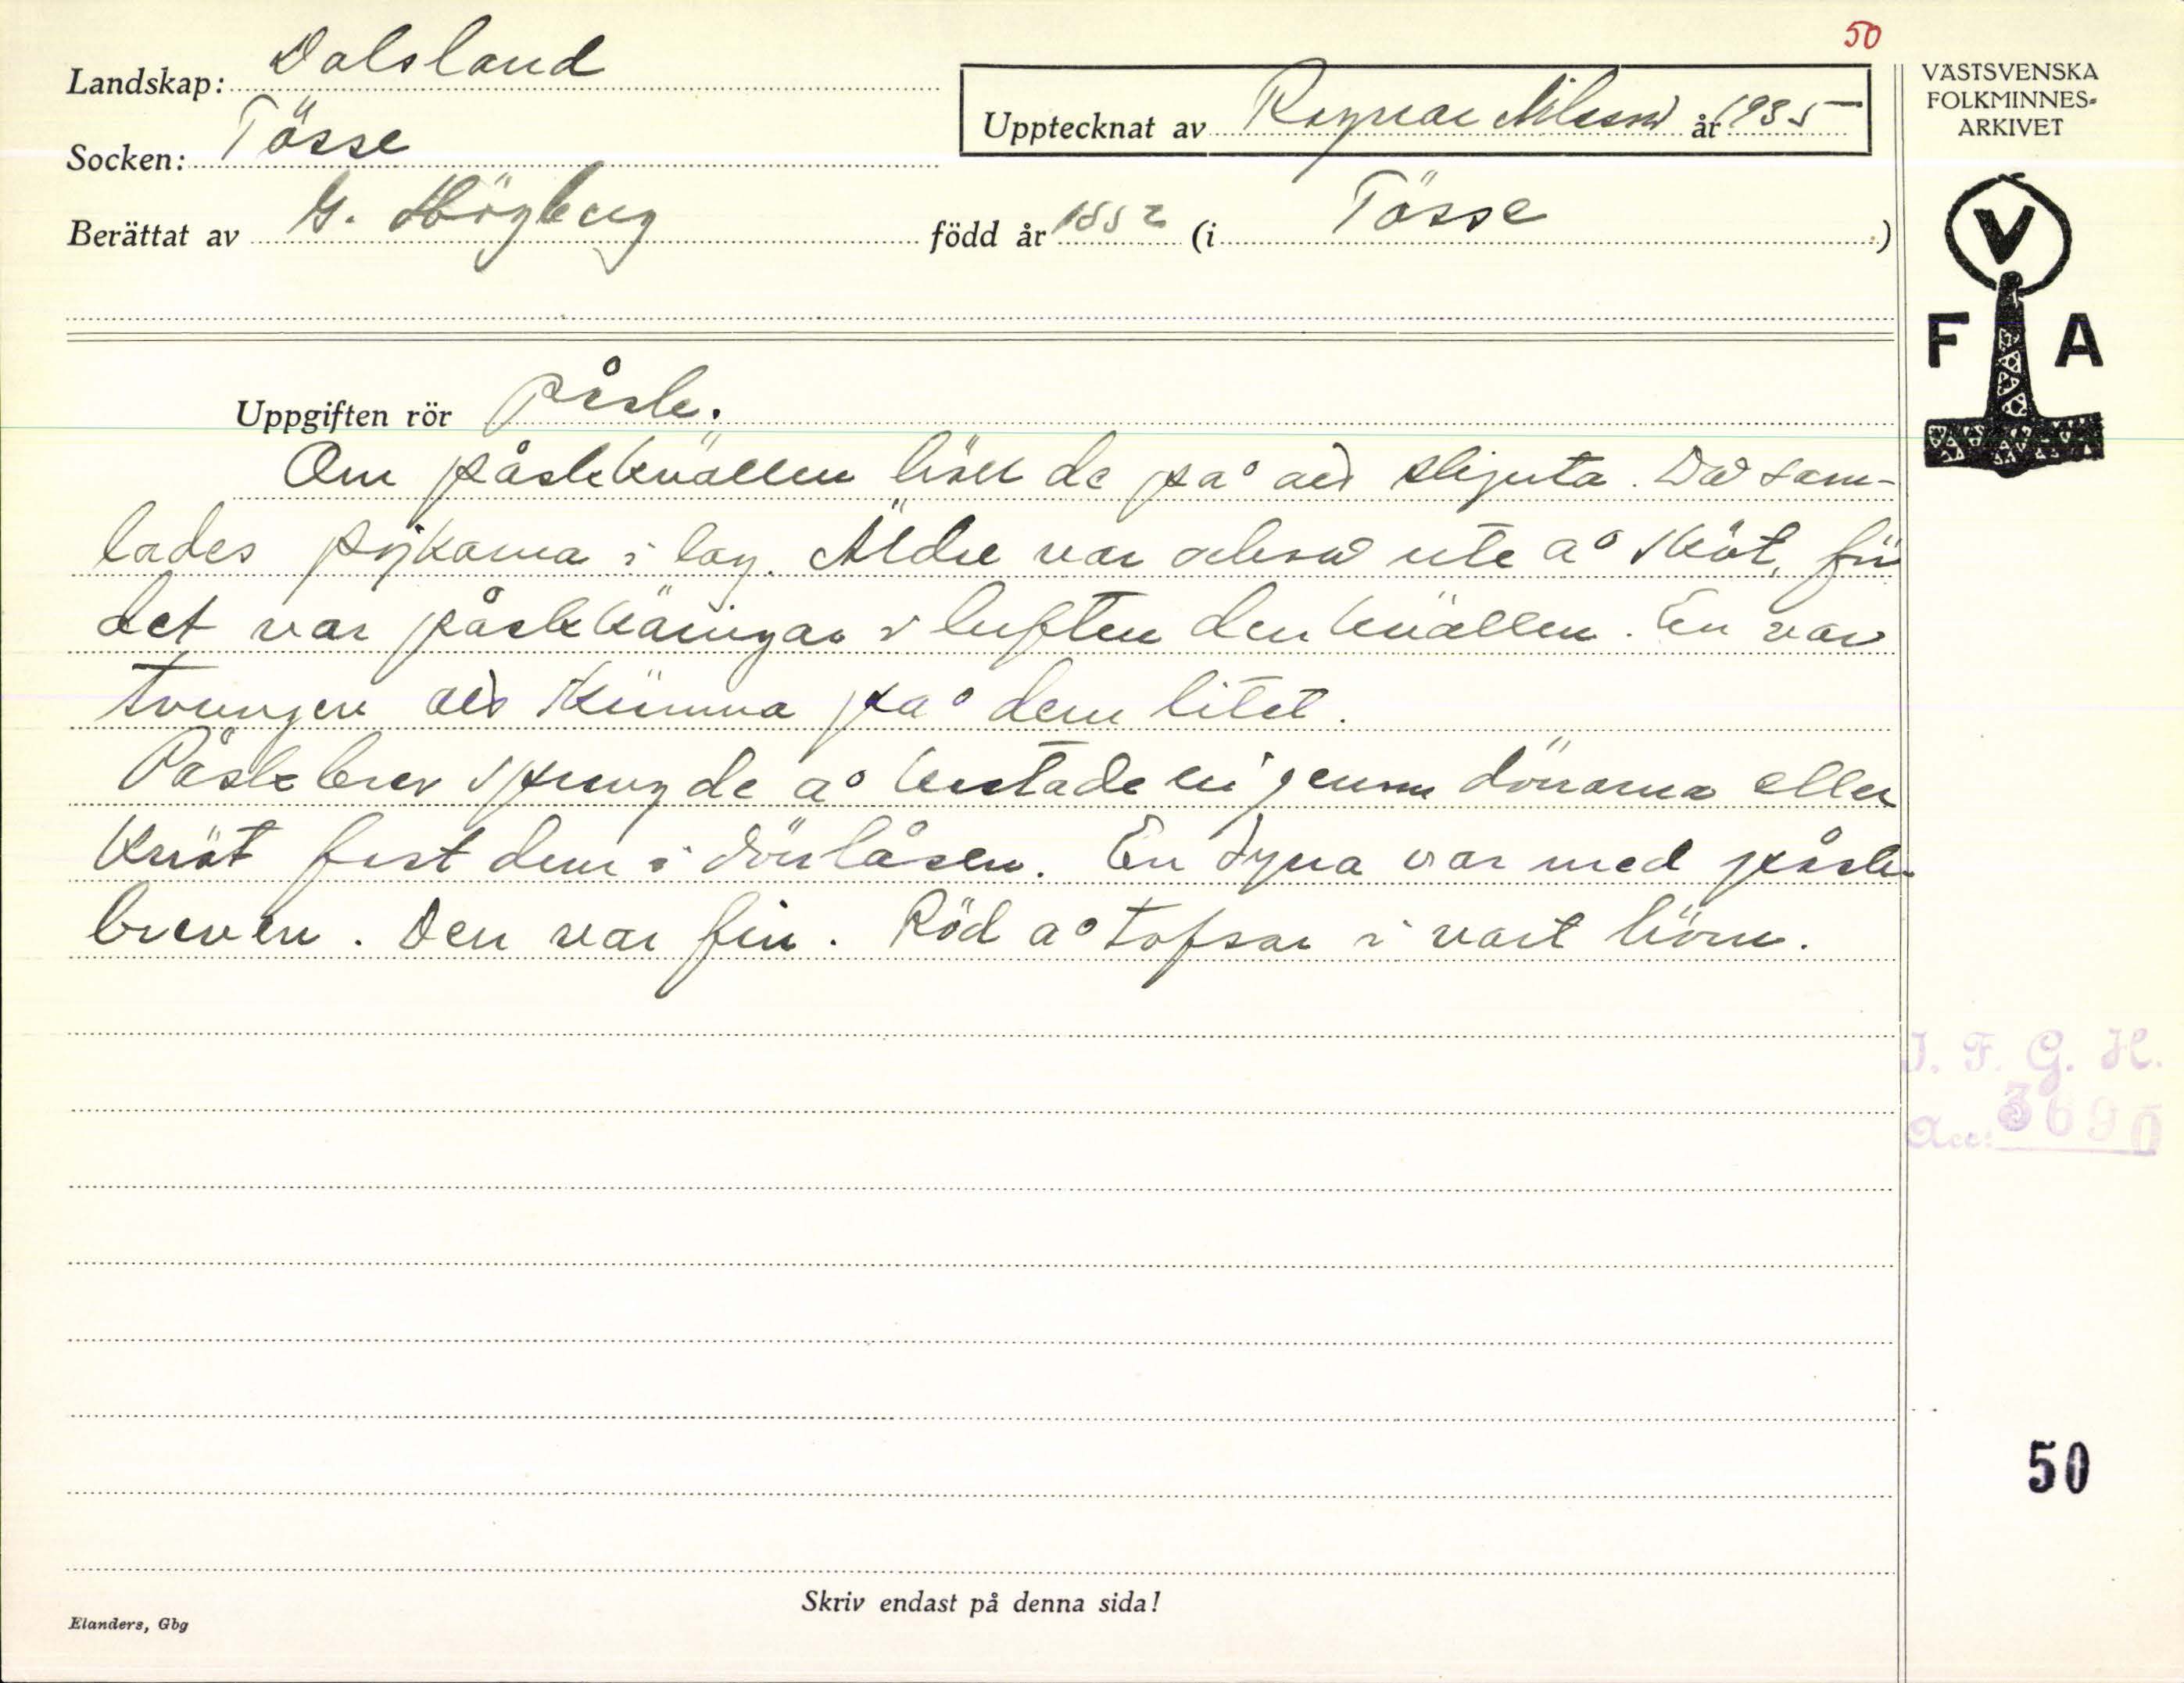 50
Landskap: Dalsland
Socken: Tösse
Upptecknat av Ragnar Nilsson år 1935
Berättat av G. Högberg född år 1852 (i Tösse)
VÄSTSVENSKA
FOLKMINNES-
ARKIVET
V
F A
Uppgiften rör Påsk.
Om påskkvällen höll de på att skjuta. Då sam-
lades pojkarna i lag. Äldre var också ute å sköt, för
det var påskkäringar i luften den kvällen. En var
tvungen att skrämma på dem litet.
Påskbrev sprung de å kastade in genom dörrarna eller
knöt fast dem i dörrlåsen. En dyna var med påsk-
breven. Den var fin. Röd å tofsar i vart hörn.
I. F. G. H.
Acc: 3690
50
Skriv endast på denna sida!
Elanders, Gbg